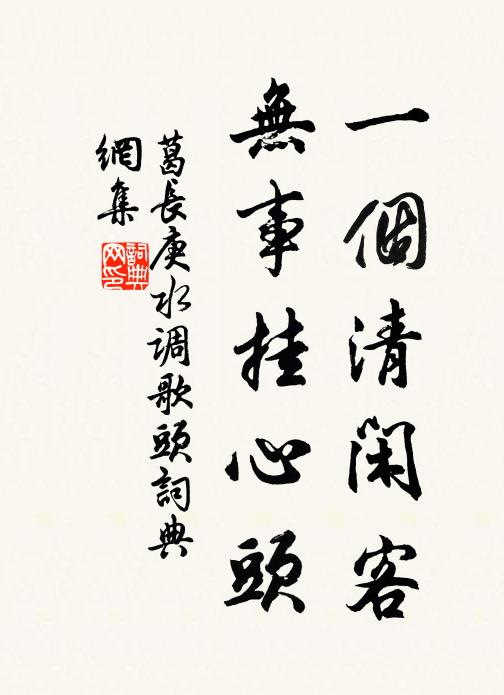 一個清閑客
無事挂心頭
葛長庚水调歌頭詞典
網集
詞典
网印